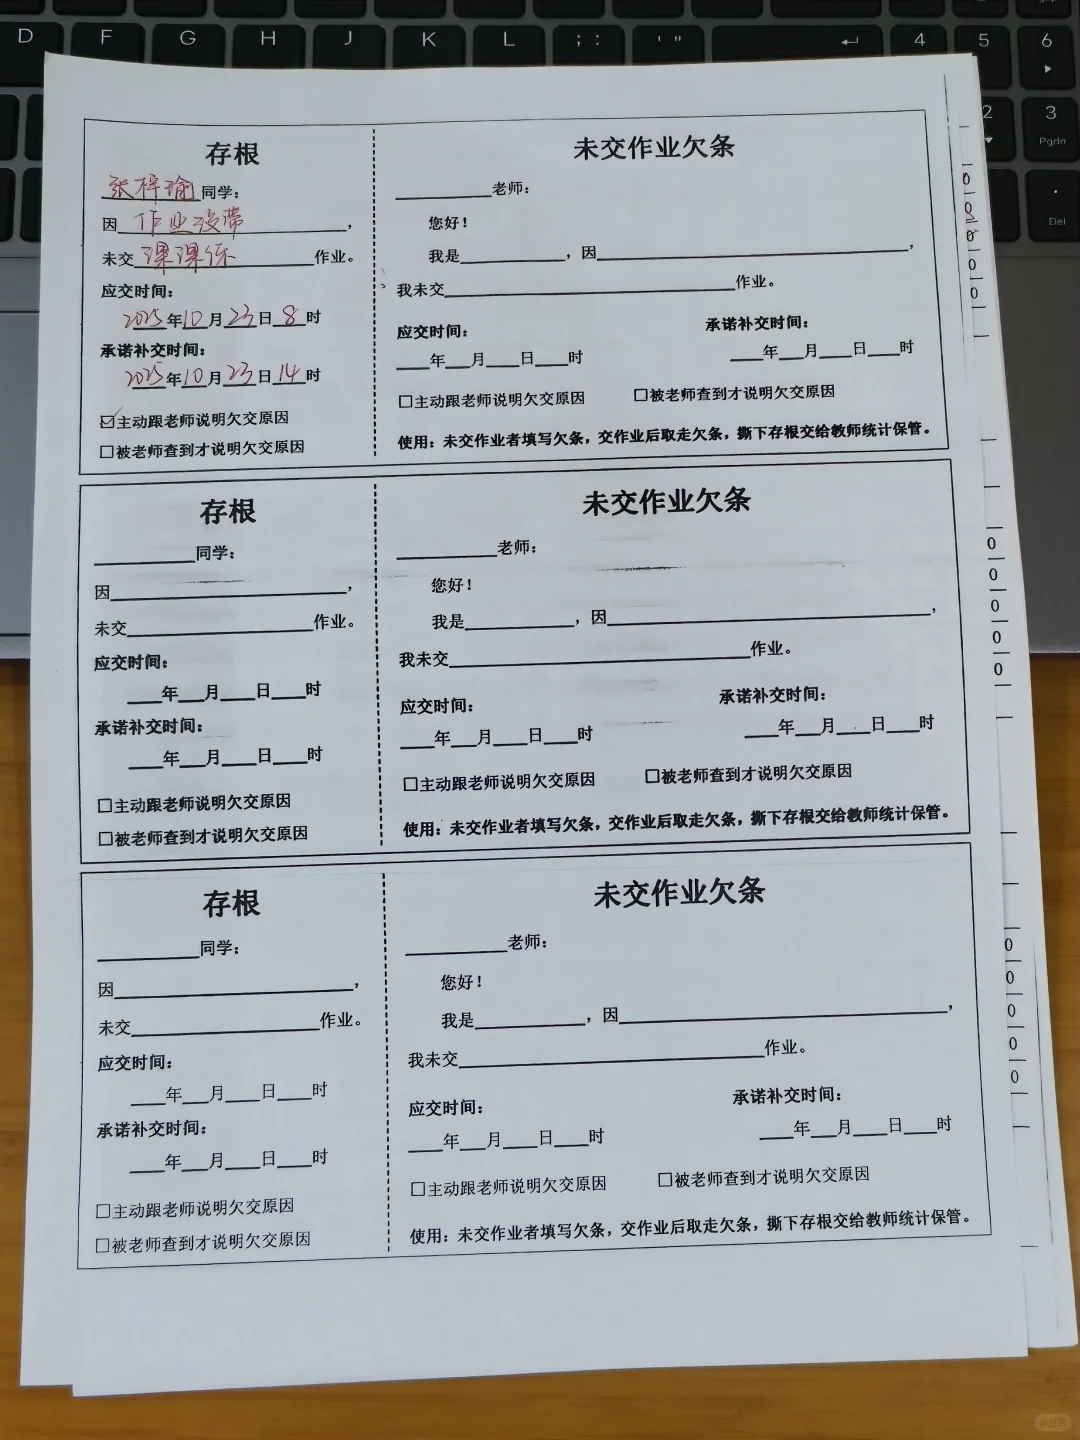 D F G H J K L ; : ' " 4 5 6
2 3
Pgdn
Del
存根
张梓瑜同学：
因作业没带，
未交课课练作业。
应交时间：
2025年10月23日8时
承诺补交时间：
2025年10月23日14时
☑主动跟老师说明欠交原因
☐被老师查到才说明欠交原因
未交作业欠条
______老师：
您好！
我是______，因______，
我未交______作业。
应交时间：
__年__月__日__时
承诺补交时间：
__年__月__日__时
☐主动跟老师说明欠交原因
☐被老师查到才说明欠交原因
使用：未交作业者填写欠条，交作业后取走欠条，撕下存根交给教师统计保管。
存根
______同学：
因______，
未交______作业。
应交时间：
__年__月__日__时
承诺补交时间：
__年__月__日__时
☐主动跟老师说明欠交原因
☐被老师查到才说明欠交原因
未交作业欠条
______老师：
您好！
我是______，因______，
我未交______作业。
应交时间：
__年__月__日__时
承诺补交时间：
__年__月__日__时
☐主动跟老师说明欠交原因
☐被老师查到才说明欠交原因
使用：未交作业者填写欠条，交作业后取走欠条，撕下存根交给教师统计保管。
存根
______同学：
因______，
未交______作业。
应交时间：
__年__月__日__时
承诺补交时间：
__年__月__日__时
☐主动跟老师说明欠交原因
☐被老师查到才说明欠交原因
未交作业欠条
______老师：
您好！
我是______，因______，
我未交______作业。
应交时间：
__年__月__日__时
承诺补交时间：
__年__月__日__时
☐主动跟老师说明欠交原因
☐被老师查到才说明欠交原因
使用：未交作业者填写欠条，交作业后取走欠条，撕下存根交给教师统计保管。
小红书